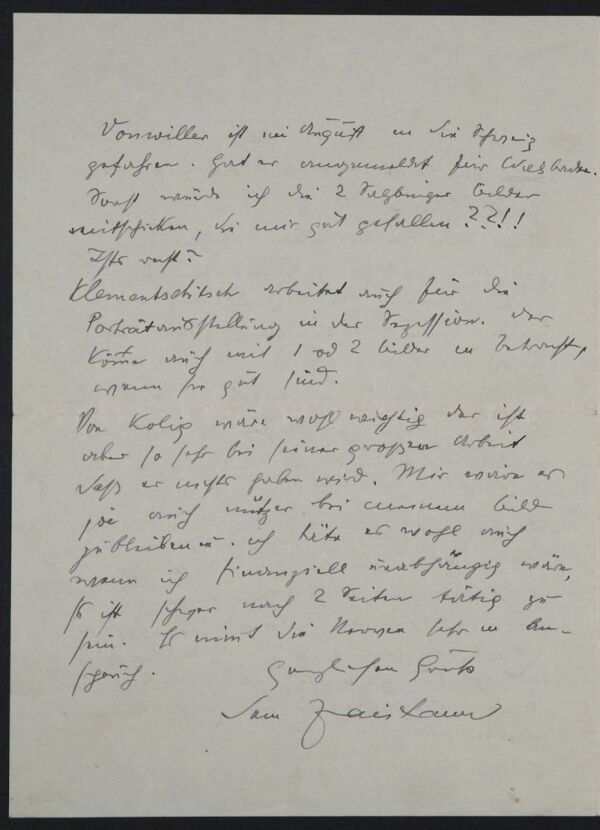 Vonwiller ist im August in die Schweiz
gefahren. Hat er angemeldet für Wiesbaden.
Sonst würde ich die 2 Salzburger Bilder
mitschicken, die mir gut gefallen??!!
Ists recht?
Klementschitsch arbeitet auch für die
Porträtausstellung in der Sezession. Der
käme auch mit 1 od 2 Bilder in Betracht,
wenn sie gut sind.
Von Kolig wäre wohl wichtig der ist
aber so sehr bei seiner großen Arbeit
daß er nichts haben wird. Mir wäre es
ja auch nützer bei meinem Bild
zu bleiben u. ich täte es wohl auch
wenn ich finanziell unabhängig wäre,
Es ist schwer nach 2 Seiten tätig zu
sein. Es nimt die Nerven sehr in An-
spruch.
Herzlichen Gruß
Dein